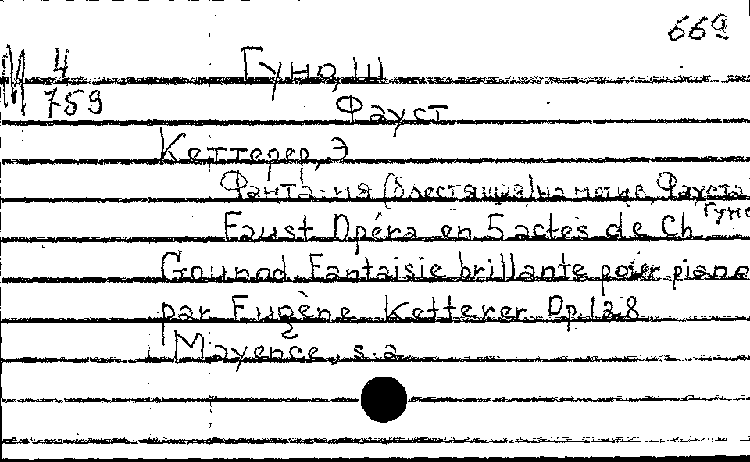 669
М 4 Гуно, Ш
759 Фауст
Кеттерер, Э
Фантазия (блестящая) на мотив. Фауста
Гуно
Faust Opéra en 5 actes de Ch
Gounod Fantaisie brillante pour piano
par Eugène Ketterer Op. 128
Mayence, s.a